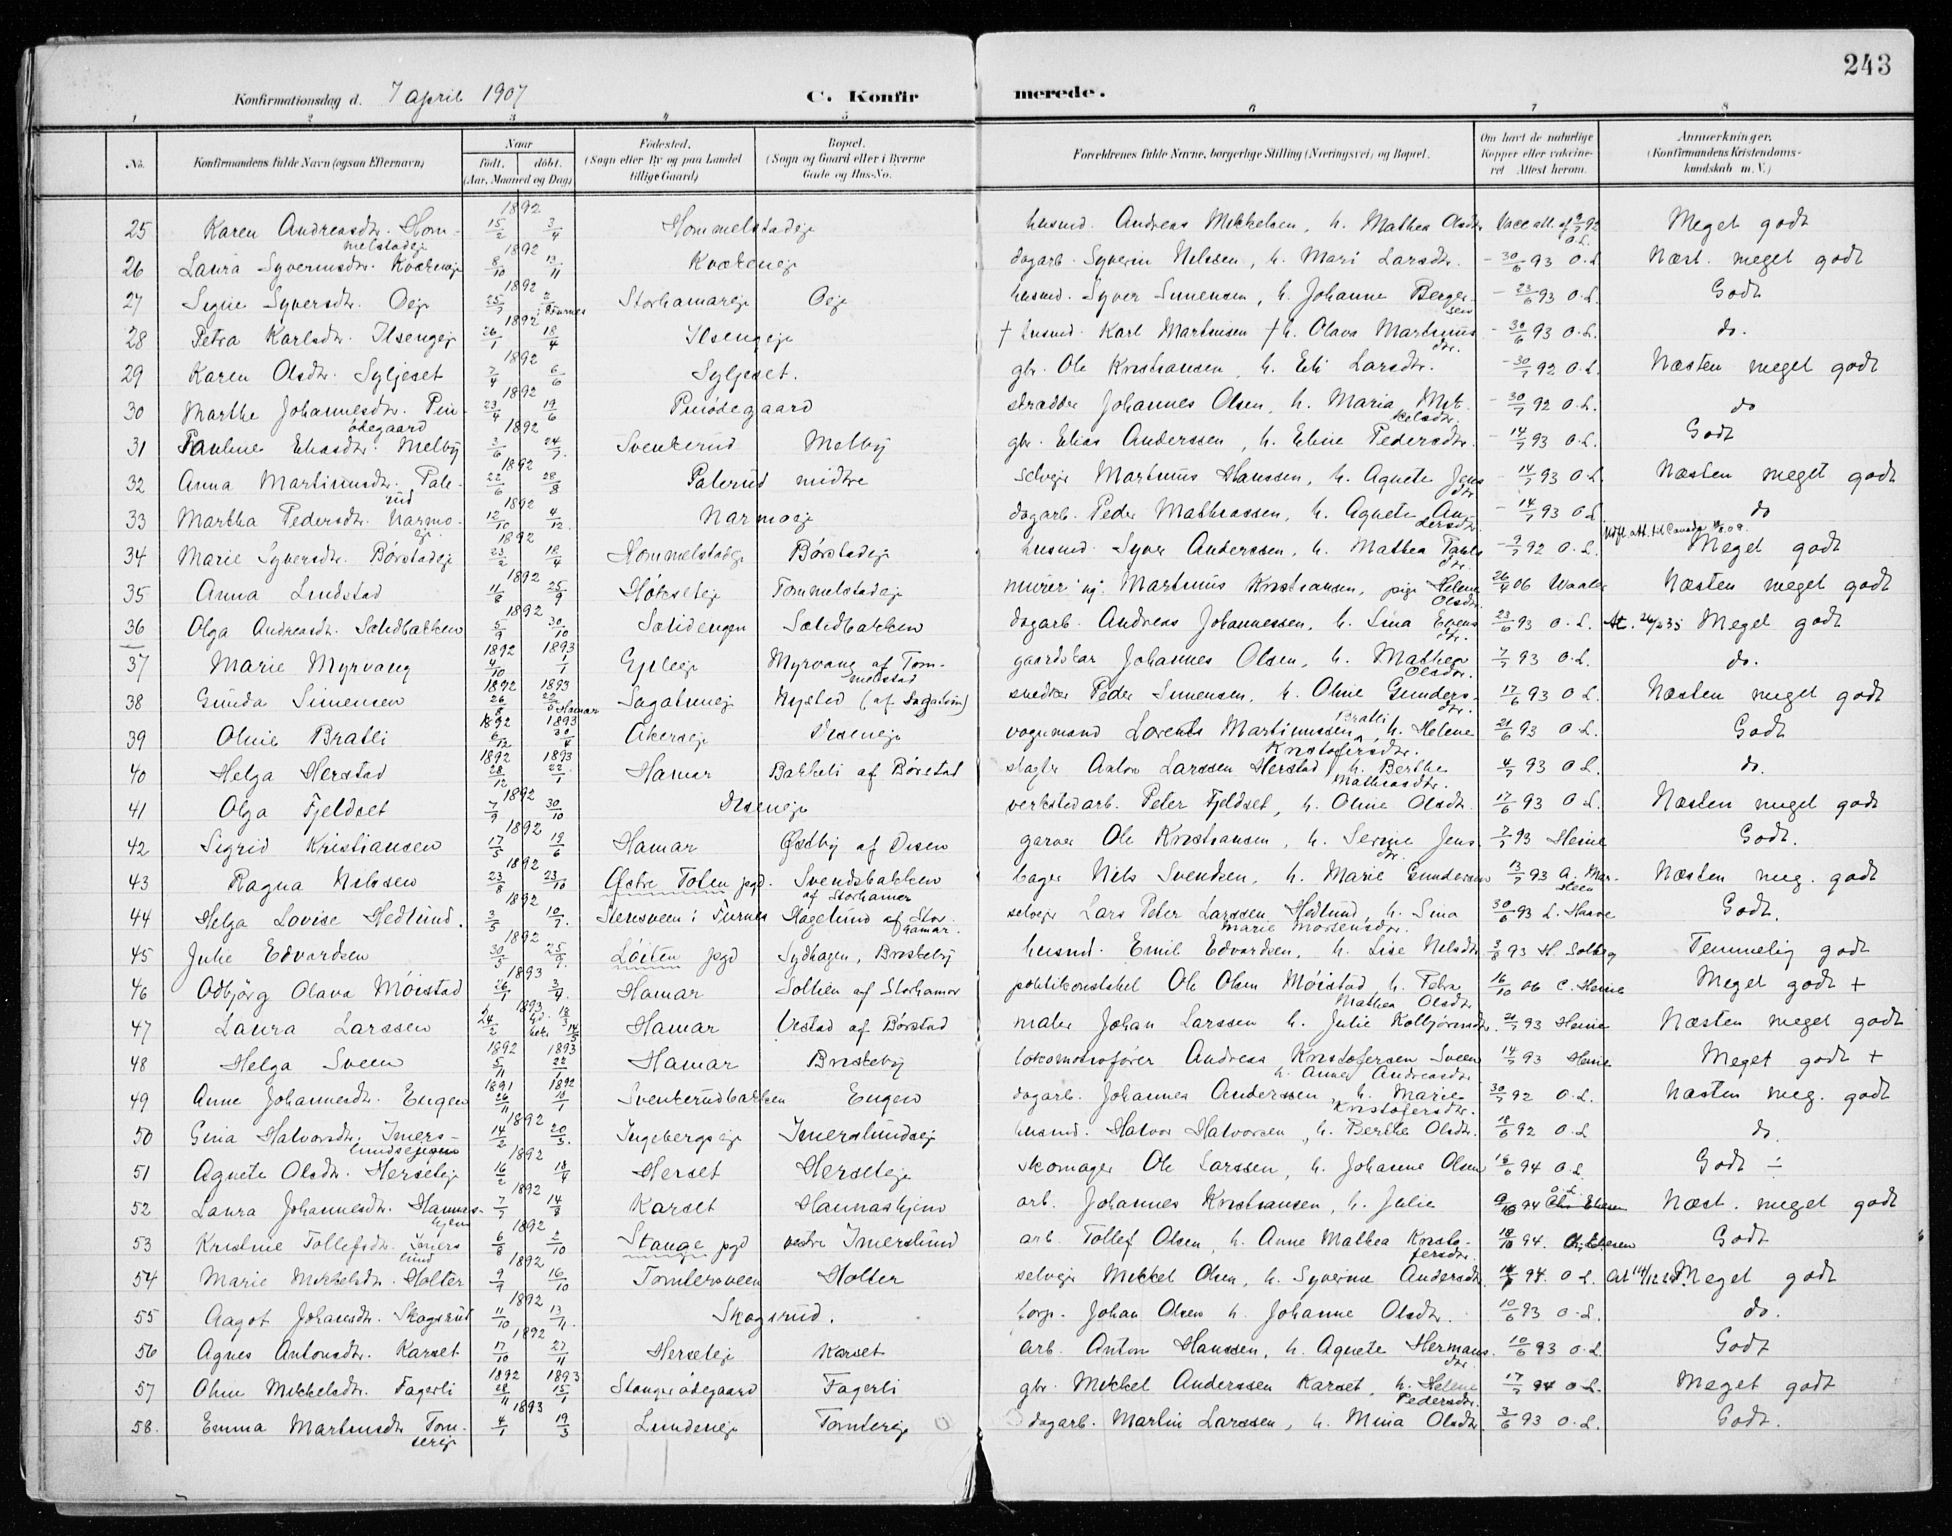 243
Konfirmationsdag d. 7 April 1907 C. Konfir merede.
1 2 3 4 5 6 7 8
No. Konfirmandens fulde Navn (ogsaa Efternavn) Naar født, døbt. (Aar, Maaned og Dag) Fødested. (Sogn eller By og paa Landet tillige Gaard) Bopæl. (Sogn og Gaard eller i Byerne Gade og Hus-No. Forældrenes fulde Navne, borgerlige Stilling (Næringsvei) og Bopæl. Om havt de naturlige Kopper eller vakcineret Attest herom. Anmærkninger. (Konfirmandens Kristendomskundskab m. V.)
25 Karen Andreasdtr. Hommelstadeje 1892 15/2 3/4 Hommelstadeje husmd. Andreas Mikkelsen, h. Mathea Olsdtr Vacc att. af 92 O.L. Meget godt
26 Laura Syverinsdtr. Kvækeneje 1892 8/10 13/11 Kvækeneje dagarb. Syverin Nilssen, h. Mari Larsdtr. - 30/6 93 O.L. Næst. meget godt
27 Signe Syversdtr. Oeje 1892 25/7 2/ i Furnes Storhamareje Oeje husmd. Syver Simensen, h. Johanne Bergersen - 23/6 93 O.L. Godt
28 Petra Karlsdtr. Ilsengeje 1892 26/1 18/4 Ilsengeje † husmd. Karl Martinsen † h. Olava Martinusdtr. - 30/6 93 O.L. do.
29 Karen Olsdtr. Syljeset 1892 7/4 6/6 Syljeset. gbr. Ole Kristiansen, h. Eli Larsdtr. - 30/7 92 O.L. Næsten meget godt
30 Marthe Johannesdtr. Pinødegaard 1892 23/4 19/6 Pinødegaard skrædder Johannes Olsen, h. Maria Mikkelsdtr. - 30/7 92 O.L. do
31 Pauline Eliasdtr. Melby 1892 3/6 24/7 Svenkerud Melby gbr. Elias Anderssen, h. Eline Pedersdtr. - 14/7 93 O.L. Godt
32 Anna Martinusdtr. Palerud 1892 22/6 28/8 Palerud midtre selvejer Martinus Hanssen, h. Agnete Jensdtr - 14/7 93 O.L. Næsten meget godt
33 Martha Pedersdtr. Narmoeje 1892 12/10 4/12 Narmoeje dagarb. Peder Mathiassen, h. Agnete Andersdtr. - 14/7 93 O.L. do
34 Marie Syversdtr. Børstadeje 1892 23/2 18/4 Hommelstadeje Børstadeje husmd. Syver Anderssen, h. Mathea - 9/7 92 O.L. Udfl. att. til Canada Meget godt
35 Anna Lindstad 1892 11/8 25/9 Høkseteje Tommelstadeje murer ug. Martinus Kristiansen, pige Helene Olsdtr. 26/4 06 Waaler Næsten meget godt
36 Olga Andreasdtr. Sælidbakken 1892 5/9 30/10 Sælidengen Sælidbakken dagarb. Andreas Johannessen, h. Lina Evensdtr. 23/6 93 O.L. Meget godt
37 Marie Myrvang 1892 4/10 1893 1/1 Gjeleje Myrvang af Tommelstad gaardskar Johannes Olsen, h. Mathea Olsdtr. 7/7 93 O.L. do.
38 Gunda Simensen 1892 26/8 1893 Hamar Sagatuneje Nystad (af Sagatun) snedker Peder Simensen, h. Oline Gundersdtr. 17/6 93 O.L. Næsten meget godt
39 Oline Bratli 1892 6/12 1893 30/4 Akerseje Diseneje vognmand Lorents Martinussen Bratli, h. Helene Kristofersdtr. 21/6 93 O.L. Godt
40 Helga Herstad 1892 28/12 1893 22/1 Hamar Bakkeli af Børstad slagter Anton Larssen Herstad, h. Berthe Mathiasdtr. 4/7 93 O.L. do.
41 Olga Fjeldset 1892 7/9 30/10 Diseneje verkstedarb. Peter Fjeldset, h. Oline Olsdtr. 17/6 93 O.L. Næsten meget godt
42 Sigrid Kristiansen 1892 17/5 19/6 Hamar Østby af Disen garver Ole Kristiansen, h. Serine Jensdtr. 7/7 93 Heine Godt.
43 Ragna Nilssen 1892 23/8 23/10 Østre Toten pgd. Svendsbakken af Storhamar bager Nils Svendsen, h. Marie Gundersen 13/7 93 Næsten meg. godt
44 Helga Lovise Hedlund. 1892 3/5 10/7 Stensveen i Furnes Hagelund af Storhamar. selvejer Lars Peter Larssen Hedlund, h. Sina Marie Mortensdtr. 30/6 93 L. Haave Godt.
45 Julie Edvardsen 1892 30/5 25/9 Løiten pgd Sydhagen, Briskeby husmd. Emil Edvardsen, h. Lise Nilsdtr 3/8 93 H. Solberg Temmelig godt
46 Odbjørg Olava Møistad 1893 26/1 3/4 Hamar Solheim af Storhamar politikonstabel Ole Olsen Møistad, h. Petra Mathea Olsdtr 16/10 06 C. Heine Meget godt +
47 Laura Larssen 1893 24/2 Hamar Vestad af Børstad maler Johan Larssen h. Julie Kolbjørnsdtr. 21/7 93 Heine Næsten meget godt
48 Helga Sveen 1892 5/11 1893 22/1 Hamar Briskeby lokomotivfører Andreas Kristofersen Sveen h. Anna Andreasdtr 14/7 93 Heine Meget godt +
49 Anne Johannesdtr. Engen 1891 26/11 1892 10/1 Svenkerudbakken Engen dagarb. Johannes Anderssen h. Marie Kristofersdtr. 30/7 92 O.L. Næsten meg. godt
50 Gina Halvorsdtr. Imerslundsejer 1892 14/2 20/3 Ingebergseje Imerslundseje husmd. Halvor Halvorsen, h. Berthe Olsdtr. 92 O.L. do.
51 Agnete Olsdtr. Herseteje 1892 16/2 18/4 Herset Herseteje skomager Ole Larssen, h. Johanne Olsen 16/6 94 O.L. Godt ÷
52 Laura Johannesdtr. Hannashjem 1892 7/7 14/8 Karset Hannashjem arb. Johannes Kristiansen, h. Julie 9/10 94 O.L. Næst. meget godt
53 Kristine Tollefsdtr. Imerslund 1892 6/8 2/10 Stange pgd vestre Imerslund arb. Tollef Olsen, h. Anne Mathea Kristofersdtr. 18/10 94. Godt
54 Marie Mikkelsdtr. Holter 1892 9/9 16/10 Tomtersveen Holter selvejer Mikkel Olsen, h. Syverine Andersdtr 94. O.L. Meget godt
55 Aagot Johansdtr. Skogsrud 1892 11/10 13/11 Skogsrud. torp. Johan Olsen h. Johanne Olsdtr. 10/6 93 O.L. do.
56 Agnes Antonsdtr. Karset 1892 17/10 27/11 Herseteje Karset arb. Anton Hanssen, h. Agnete Hermansdtr. 10/6 93 O.L. Godt
57 Oline Mikkelsdtr. Fagerli 1892 28/11 1893 15/1 Stangeødegaard Fagerli gbr. Mikkel Anderssen Karset, h. Helene Pedersdtr. 17/7 94 O.L. Meget godt
58. Emma Martinsdtr Tomtereje 1893 4/1 19/3 Lundeneje Tomtereje dagarb. Martin Larssen, h. Mina Olsdtr. 3/6 93 O.L. Godt.